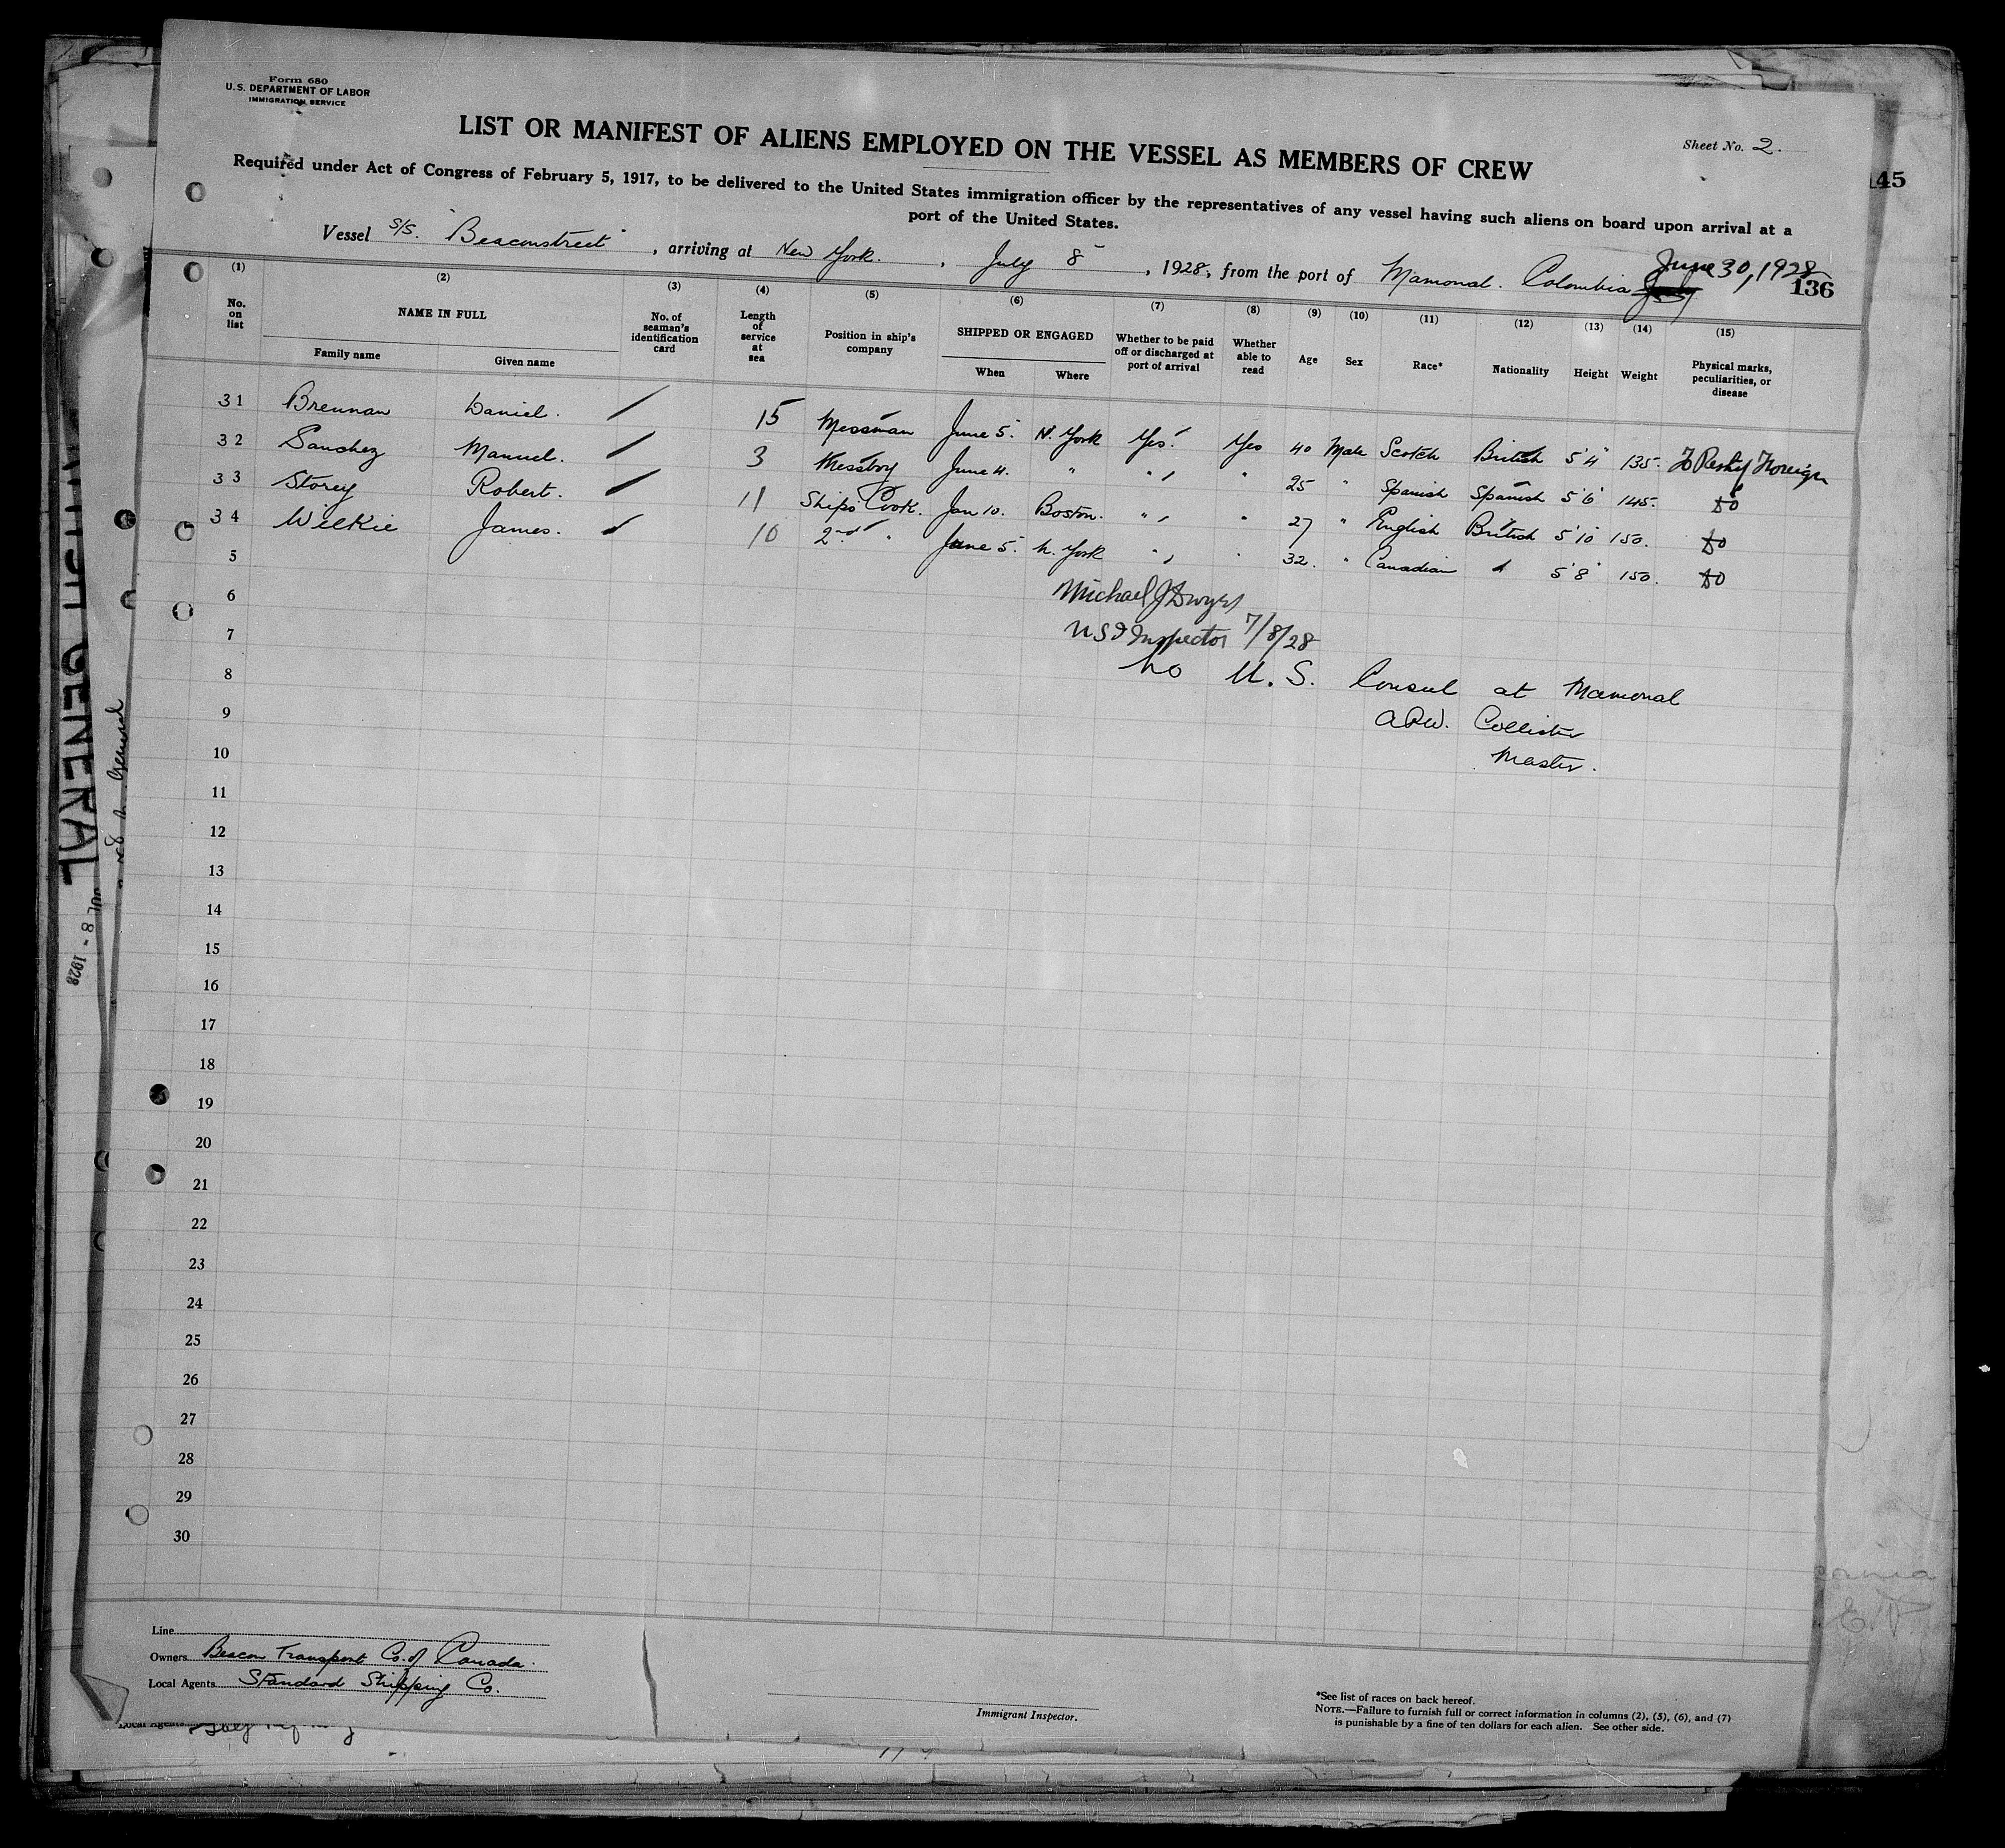 Form 680
U.S. DEPARTMENT OF LABOR
IMMIGRATION SERVICE
LIST OR MANIFEST OF ALIENS EMPLOYED ON THE VESSEL AS MEMBERS OF CREW
Sheet No. 2.
145
Required under Act of Congress of February 5, 1917, to be delivered to the United States immigration officer by the representatives of any vessel having such aliens on board upon arrival at a
port of the United States.
Vessel S/S. "Beaconstreet", arriving at New York., July 8, 1928, from the port of Mamonal. Colombia June 30, 1928
136
(1) (2) (3) (4) (5) (6) (7) (8) (9) (10) (11) (12) (13) (14) (15)
No. on list NAME IN FULL Family name Given name No. of seaman's identification card Length of service at sea Position in ship's company SHIPPED OR ENGAGED When Where Whether to be paid off or discharged at port of arrival Whether able to read Age Sex Race* Nationality Height Weight Physical marks, peculiarities, or disease
31 Brennan Daniel. 15 Messman June 5. N. York Yes. Yes 40 Male Scotch British 5'4" 135. To Reship Foreign
32 Sanchez Manuel. 3 Messboy June 4. " " " 25 " Spanish Spanish 5'6" 145. do
33 Storey Robert. 11 Ships Cook. Jan 10. Boston. " " 27 " English British 5'10" 150. do
34 Wilkie James. 10 2nd " June 5. N. York " " 32. " Canadian " 5'8" 150. do
5
6 Michael J Dwyer
7 US I Inspector 7/8/28
8 No U. S. Consul at Mamonal
9 A.R.W. Collister
10 Master.
11
12
13
14
15
16
17
18
19
20
21
22
23
24
25
26
27
28
29
30
Line
Owners Beacon Transport Co. of Canada.
Local Agents Standard Shipping Co.
Immigrant Inspector.
*See list of races on back hereof.
NOTE.—Failure to furnish full or correct information in columns (2), (5), (6), and (7)
is punishable by a fine of ten dollars for each alien. See other side.
Local Agents
GENERAL
JUL 8 - 1928